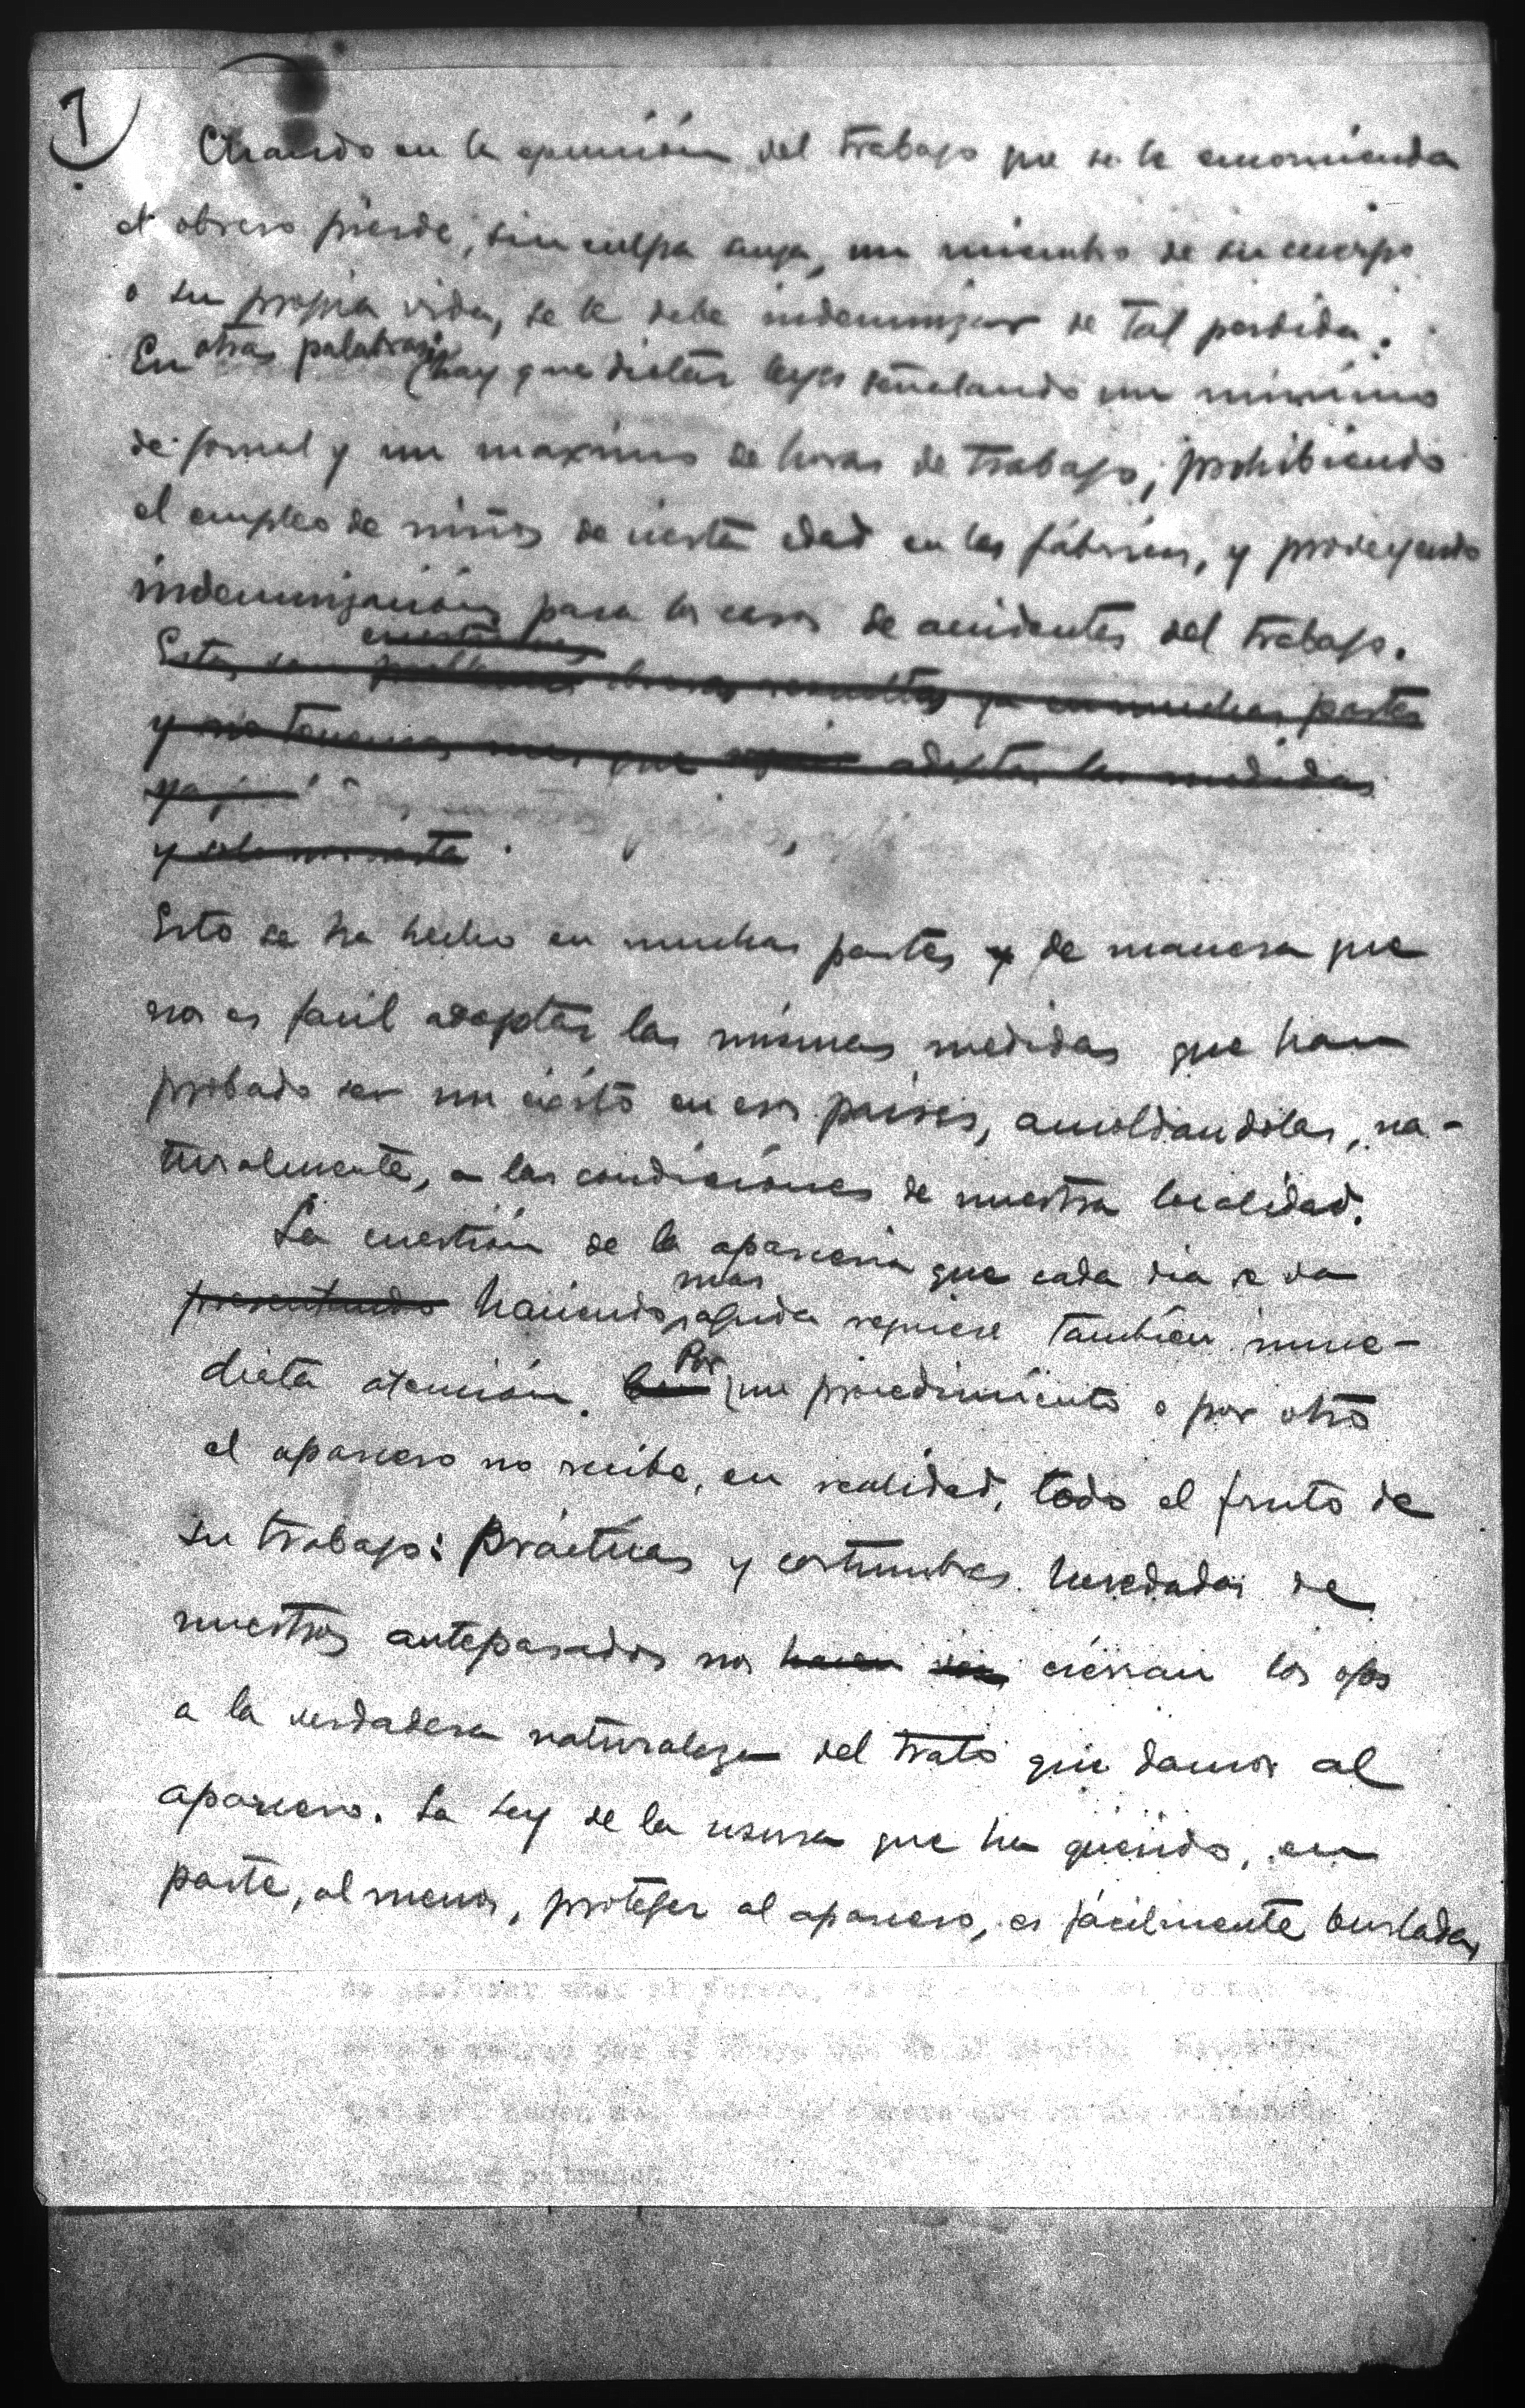 7
Cuando en la ejecución del trabajo que se le encomienda
el obrero pierde, sin culpa suya, un miembro de su cuerpo
o su propia vida, se le debe indemnizar de tal perdida.
En otras palabras, hay que dictar leyes señalando un mínimo
de jornal y un maximo de horas de trabajo, prohibiendo
el empleo de niños de cierta edad en las fábricas, y proveyendo
indemnización para los casos de accidentes del trabajo.
cuestiones
Estas son resueltas ya en muchas partes
y no tenemos mas que adoptar las medidas
Esto se ha hecho en muchas partes y de manera que
nos es facil adoptar las mismas medidas que han
probado ser un éxito en esos paises, amoldandolas, na-
turalmente, a las condiciones de nuestra localidad.
La cuestión de la aparceria que cada dia se va
mas
presentando haciendo aguda requiere tambien inme-
diata atención. Por un procedimiento o por otro
el aparcero no recibe, en realidad, todo el fruto de
su trabajo: prácticas y costumbres heredadas de
nuestros antepasados nos hacen cierran los ojos
a la verdadera naturaleza del trato que damos al
aparcero. La Ley de la usura que ha querido, en
parte, al menos, proteger al aparcero, es fácilmente burlada,